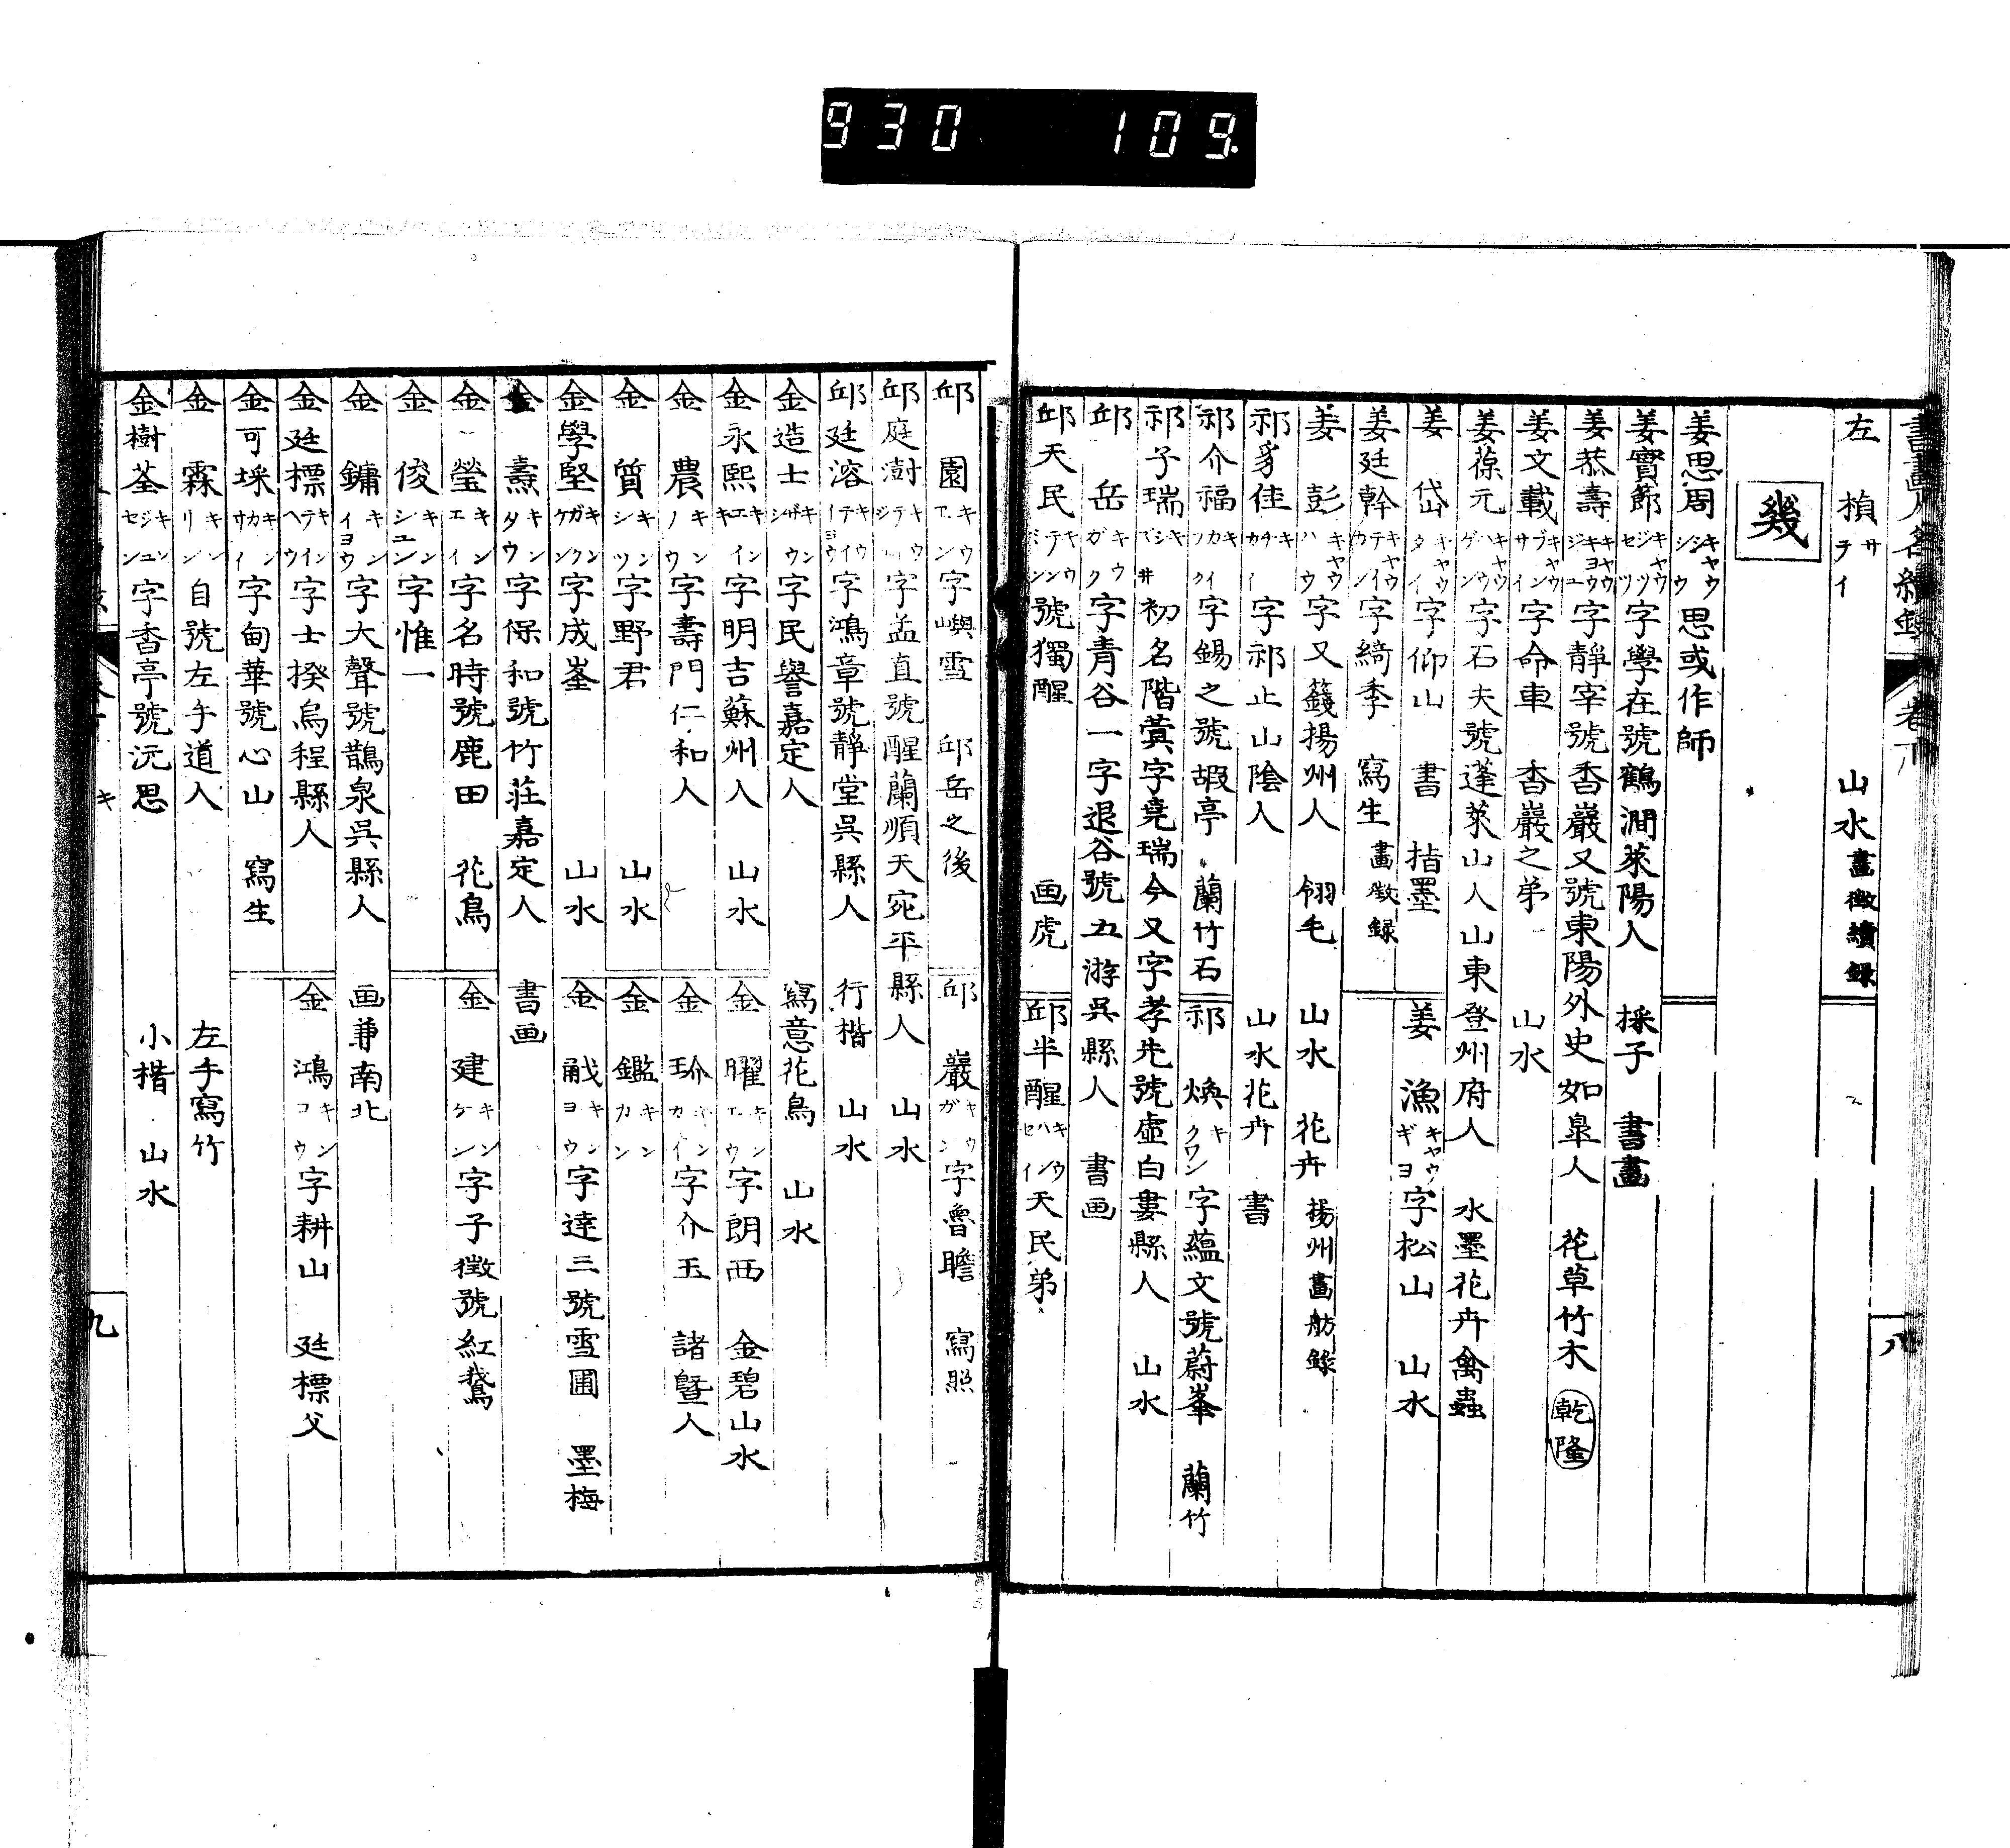 930 109.
左楨サテイ 山水畫徵續録
幾
姜思周キヤウシシウ 思或作師
姜實節キヤウジツセツ字學在號鶴澗萊陽人 採子 書畫
姜恭壽キヤウキヨウジユ字靜宰號香巖又號東陽外史如皐人 花草竹木 乾隆
姜文載キヤウブンサイ字命車 香巖之弟 山水
姜葆元キヤウハウゲン字石夫號蓬萊山人山東登州府人 水墨花卉禽蟲
姜岱キヤウタイ字仰山 書 指墨
姜漁キヤウギヨ字松山 山水
姜廷幹キヤウテイカン字綺季 寫生畫徵録
姜彭キヤウハウ字又籛揚州人 翎毛 山水 花卉揚州畫舫録
祁豸佳キチカイ字祁止山陰人 山水花卉 書
祁介福キカイフク字錫之號嘏亭 蘭竹石
祁煥キクワン字蘊文號蔚峯 蘭竹
祁子瑞キシズヰ初名階蓂字堯瑞今又字孝先號虛白婁縣人 山水
邱岳キウガク字青谷一字退谷號五游吳縣人 書画
邱天民キウテンミン號獨醒 画虎
邱半醒キウハンセイ天民弟
八
邱園キウエン字嶼雪 邱岳之後
邱巖キウガン字魯瞻 寫照
邱庭澍キウテイジ字孟直號醒蘭順天宛平縣人 山水
邱廷溶キウテイヨウ字鴻章號靜堂吳縣人 行楷 山水
金造士キンザウシ字民譽嘉定人 寫意花鳥 山水
金永熙キンエイキ字明吉蘇州人 山水
金曜キンエウ字朗西 金碧山水
金農キンノウ字壽門仁和人
金玠キンカイ字介玉 諸曁人
金質キンシツ字野君 山水
金鑑キンカン
金學堅キンガクケン字成峯 山水
金戩キンヨウ字逹三號雪圃 墨梅
金燾キンタウ字保和號竹莊嘉定人 書画
金瑩キンエイ字名時號鹿田 花鳥
金建キンケン字子徵號紅鵞
金俊キンシユン字惟一
金鏞キンヨウ字大聲號鵲泉吳縣人 画兼南北
金廷標キンテイヘウ字士揆烏程縣人
金鴻キンコウ字耕山 廷標父
金可埰キンカサイ字甸華號心山 寫生
金霖キンリン 自號左手道人 左手寫竹
金樹荃キンジユセン字香亭號沅思 小楷 山水
九